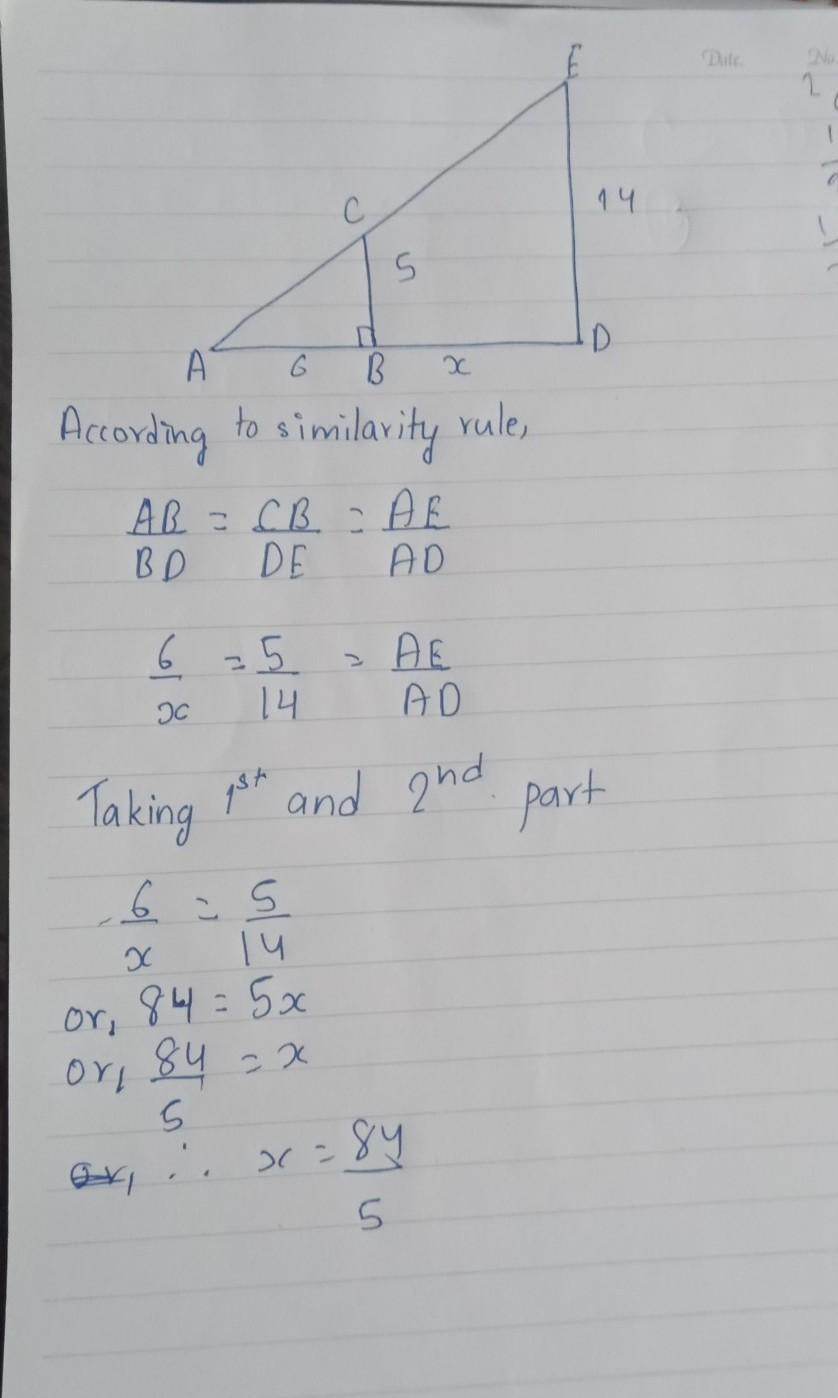 Date. No.
2
E
C
14
5
A 6 B x D
According to similarity rule,
AB/BD = CB/DE = AE/AD
6/x = 5/14 = AE/AD
Taking 1st and 2nd part
6/x = 5/14
or, 84 = 5x
or, 84/5 = x
∴ x = 84/5